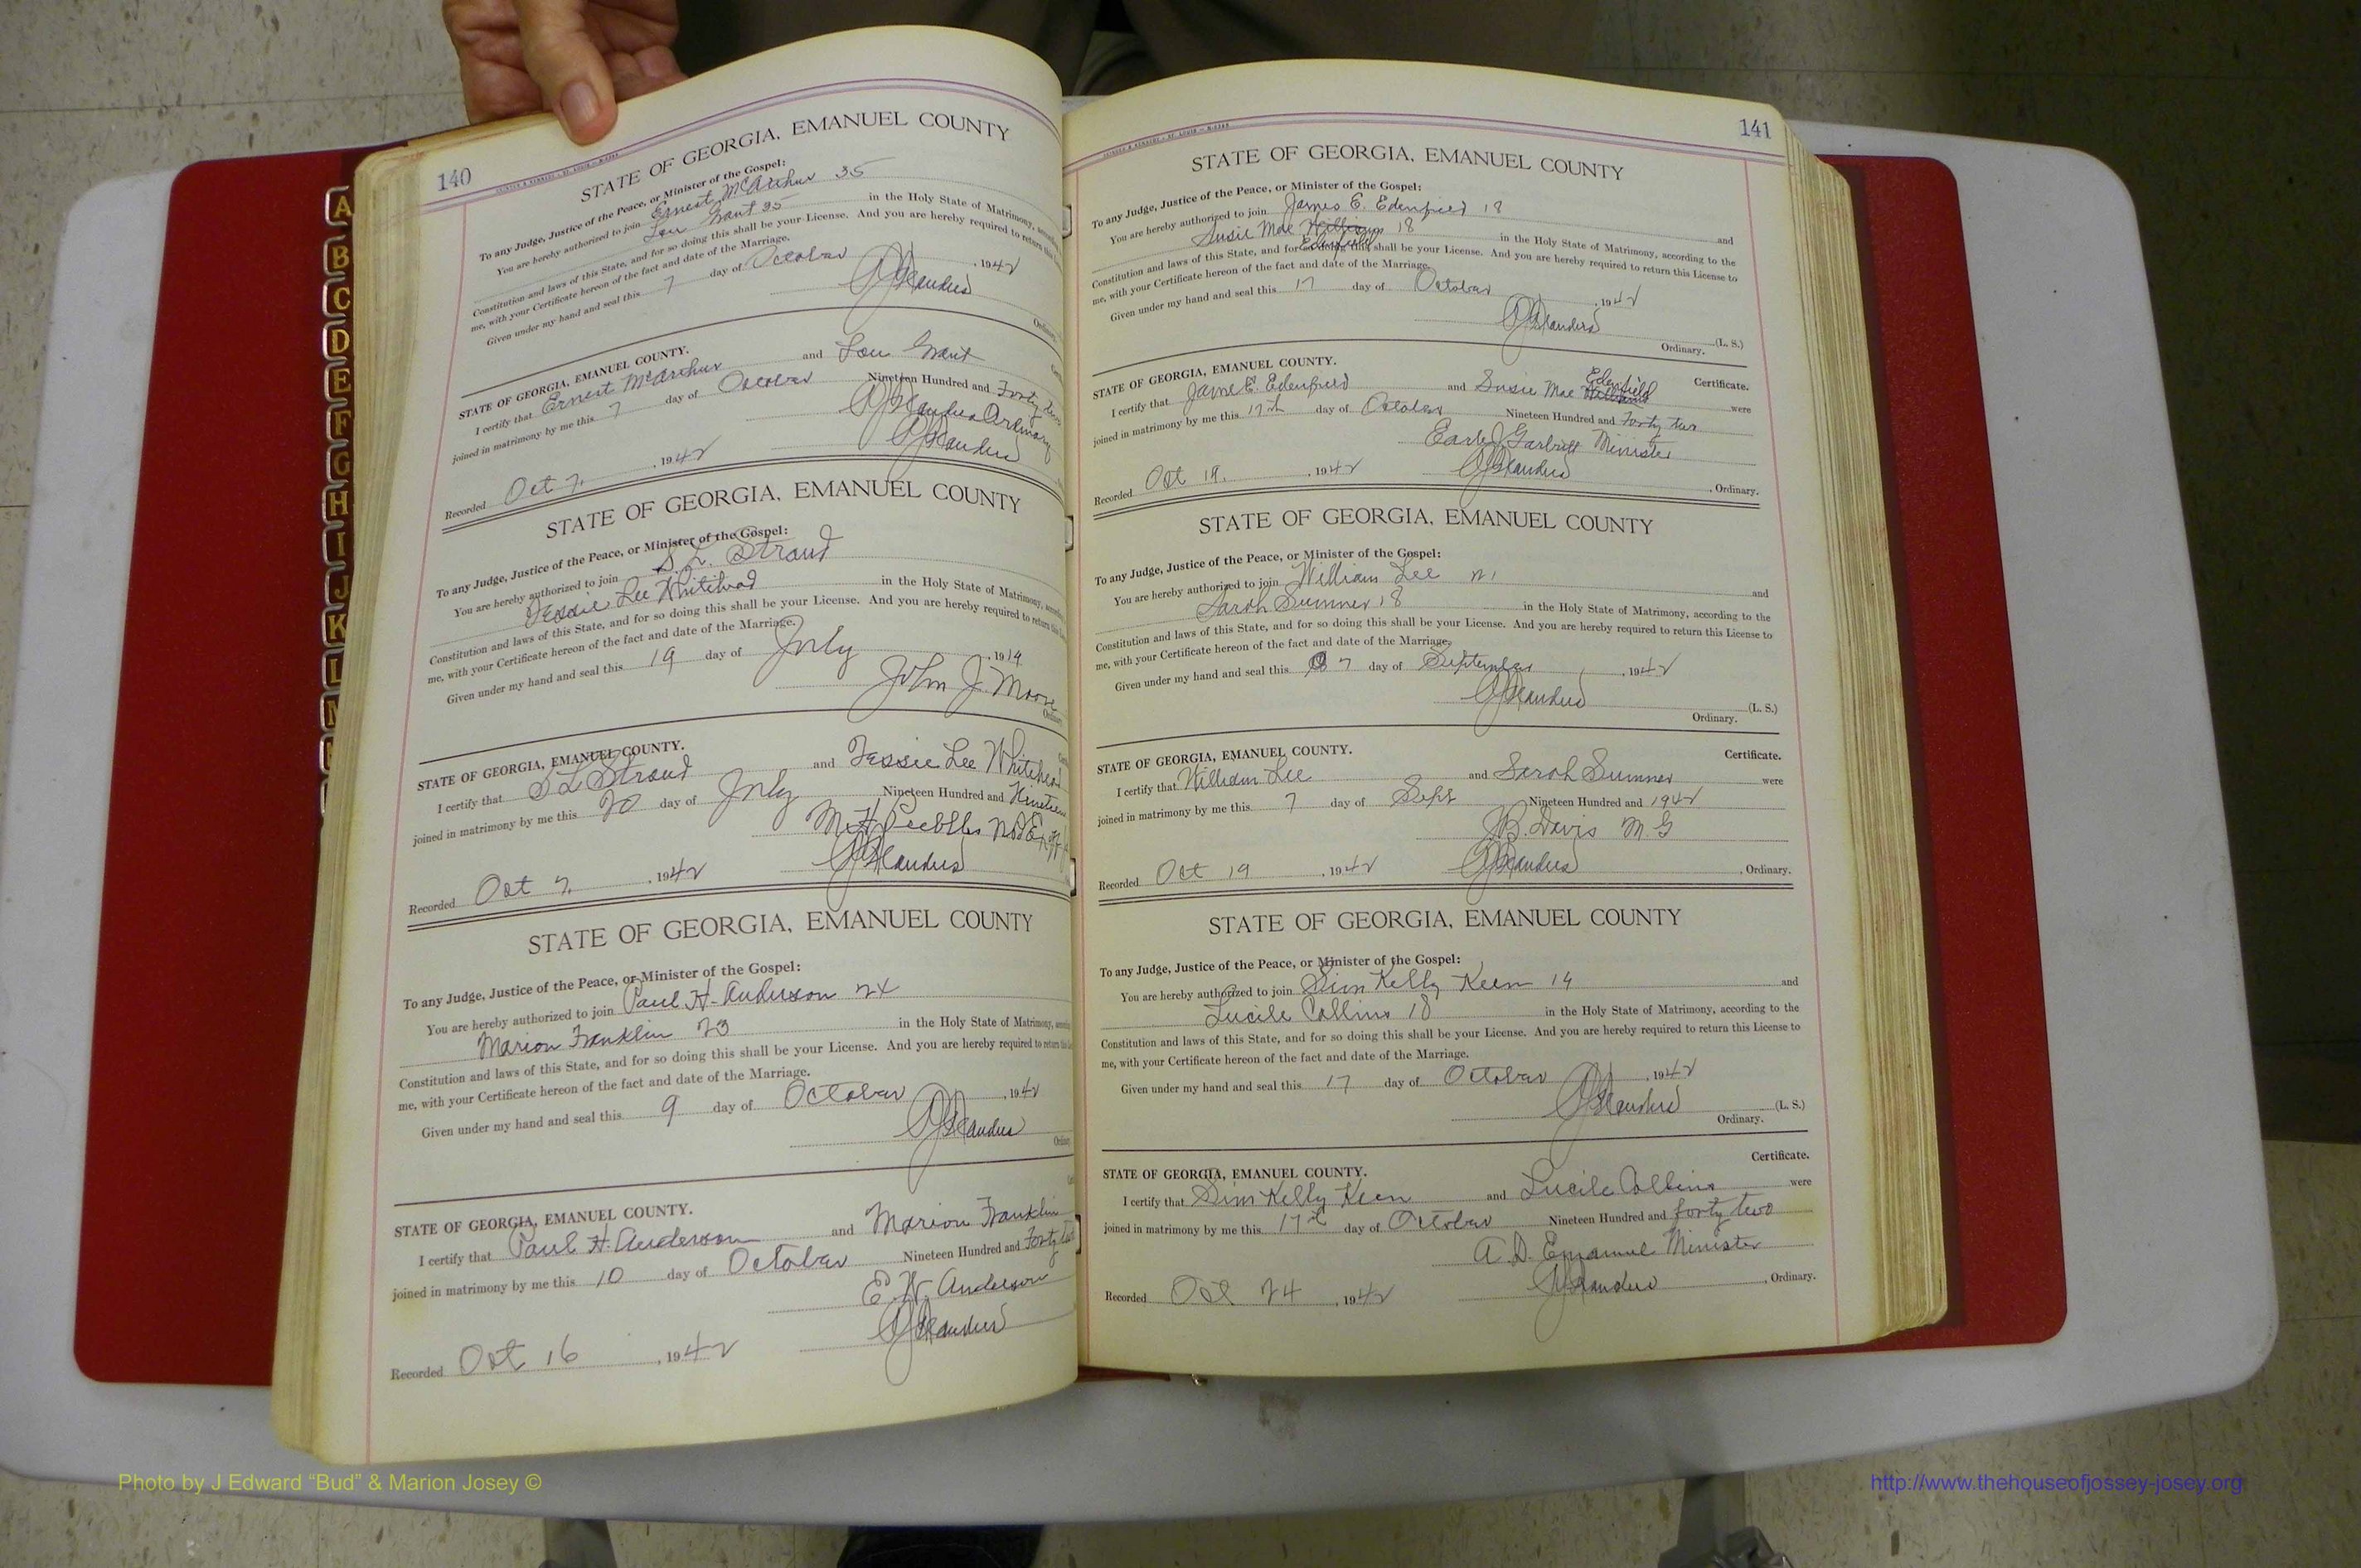 140
STATE OF GEORGIA, EMANUEL COUNTY
To any Judge, Justice of the Peace, or Minister of the Gospel:
You are hereby authorized to join Ernest McArthur 35
Lou Grant 35 in the Holy State of Matrimony,
Constitution and laws of this State, and for so doing this shall be your License. And you are hereby required to return this
me, with your Certificate hereon of the fact and date of the Marriage.
Given under my hand and seal this 7 day of October, 1942
STATE OF GEORGIA, EMANUEL COUNTY.
I certify that Ernest McArthur and Lou Grant
joined in matrimony by me this 7 day of October Nineteen Hundred and Forty two
Recorded Oct 7, 1942
STATE OF GEORGIA, EMANUEL COUNTY
To any Judge, Justice of the Peace, or Minister of the Gospel:
You are hereby authorized to join S. L. Stroud
Jessie Lee Whitehead in the Holy State of Matrimony,
Constitution and laws of this State, and for so doing this shall be your License. And you are hereby required to return this
me, with your Certificate hereon of the fact and date of the Marriage.
Given under my hand and seal this 19 day of July, 1919
John J. Moore
STATE OF GEORGIA, EMANUEL COUNTY.
I certify that S L Stroud and Jessie Lee Whitehead
joined in matrimony by me this 20 day of July Nineteen Hundred and Nineteen
Recorded Oct 7, 1942
STATE OF GEORGIA, EMANUEL COUNTY
To any Judge, Justice of the Peace, or Minister of the Gospel:
You are hereby authorized to join Paul H. Anderson 24
Marion Franklin 23 in the Holy State of Matrimony,
Constitution and laws of this State, and for so doing this shall be your License. And you are hereby required to return
me, with your Certificate hereon of the fact and date of the Marriage.
Given under my hand and seal this 9 day of October, 1942
STATE OF GEORGIA, EMANUEL COUNTY.
I certify that Paul H. Anderson and Marion Franklin
joined in matrimony by me this 10 day of October Nineteen Hundred and Forty
E. W. Anderson
Recorded Oct 16, 1942
141
STATE OF GEORGIA, EMANUEL COUNTY
To any Judge, Justice of the Peace, or Minister of the Gospel:
You are hereby authorized to join James E. Edenfield 18 and
Susie Mae Edenfield 18 in the Holy State of Matrimony, according to the
Constitution and laws of this State, and for so doing this shall be your License. And you are hereby required to return this License to
me, with your Certificate hereon of the fact and date of the Marriage.
Given under my hand and seal this 17 day of October, 1942
(L. S.)
Ordinary.
STATE OF GEORGIA, EMANUEL COUNTY. Certificate.
I certify that James E. Edenfield and Susie Mae Edenfield were
joined in matrimony by me this 17th day of October Nineteen Hundred and Forty two
Earle J. Garbutt Minister
Recorded Oct 19, 1942, Ordinary.
STATE OF GEORGIA, EMANUEL COUNTY
To any Judge, Justice of the Peace, or Minister of the Gospel:
You are hereby authorized to join William Lee 21 and
Sarah Sumner 18 in the Holy State of Matrimony, according to the
Constitution and laws of this State, and for so doing this shall be your License. And you are hereby required to return this License to
me, with your Certificate hereon of the fact and date of the Marriage.
Given under my hand and seal this 7 day of September, 1942
(L. S.)
Ordinary.
STATE OF GEORGIA, EMANUEL COUNTY. Certificate.
I certify that William Lee and Sarah Sumner were
joined in matrimony by me this 7 day of Sept Nineteen Hundred and 1942
J B. Davis M G
Recorded Oct 19, 1942, Ordinary.
STATE OF GEORGIA, EMANUEL COUNTY
To any Judge, Justice of the Peace, or Minister of the Gospel:
You are hereby authorized to join Sim Kelly Keen 19 and
Lucile Collins 18 in the Holy State of Matrimony, according to the
Constitution and laws of this State, and for so doing this shall be your License. And you are hereby required to return this License to
me, with your Certificate hereon of the fact and date of the Marriage.
Given under my hand and seal this 17 day of October, 1942
(L. S.)
Ordinary.
Certificate.
STATE OF GEORGIA, EMANUEL COUNTY.
I certify that Sim Kelly Keen and Lucile Collins were
joined in matrimony by me this 17th day of October Nineteen Hundred and forty two
A. D. Emanuel Minister
Recorded Oct 24, 1942, Ordinary.
A
B
C
D
E
F
G
H
I
J
K
L
Photo by J Edward “Bud” & Marion Josey ©
http://www.thehouseofjossey-josey.org